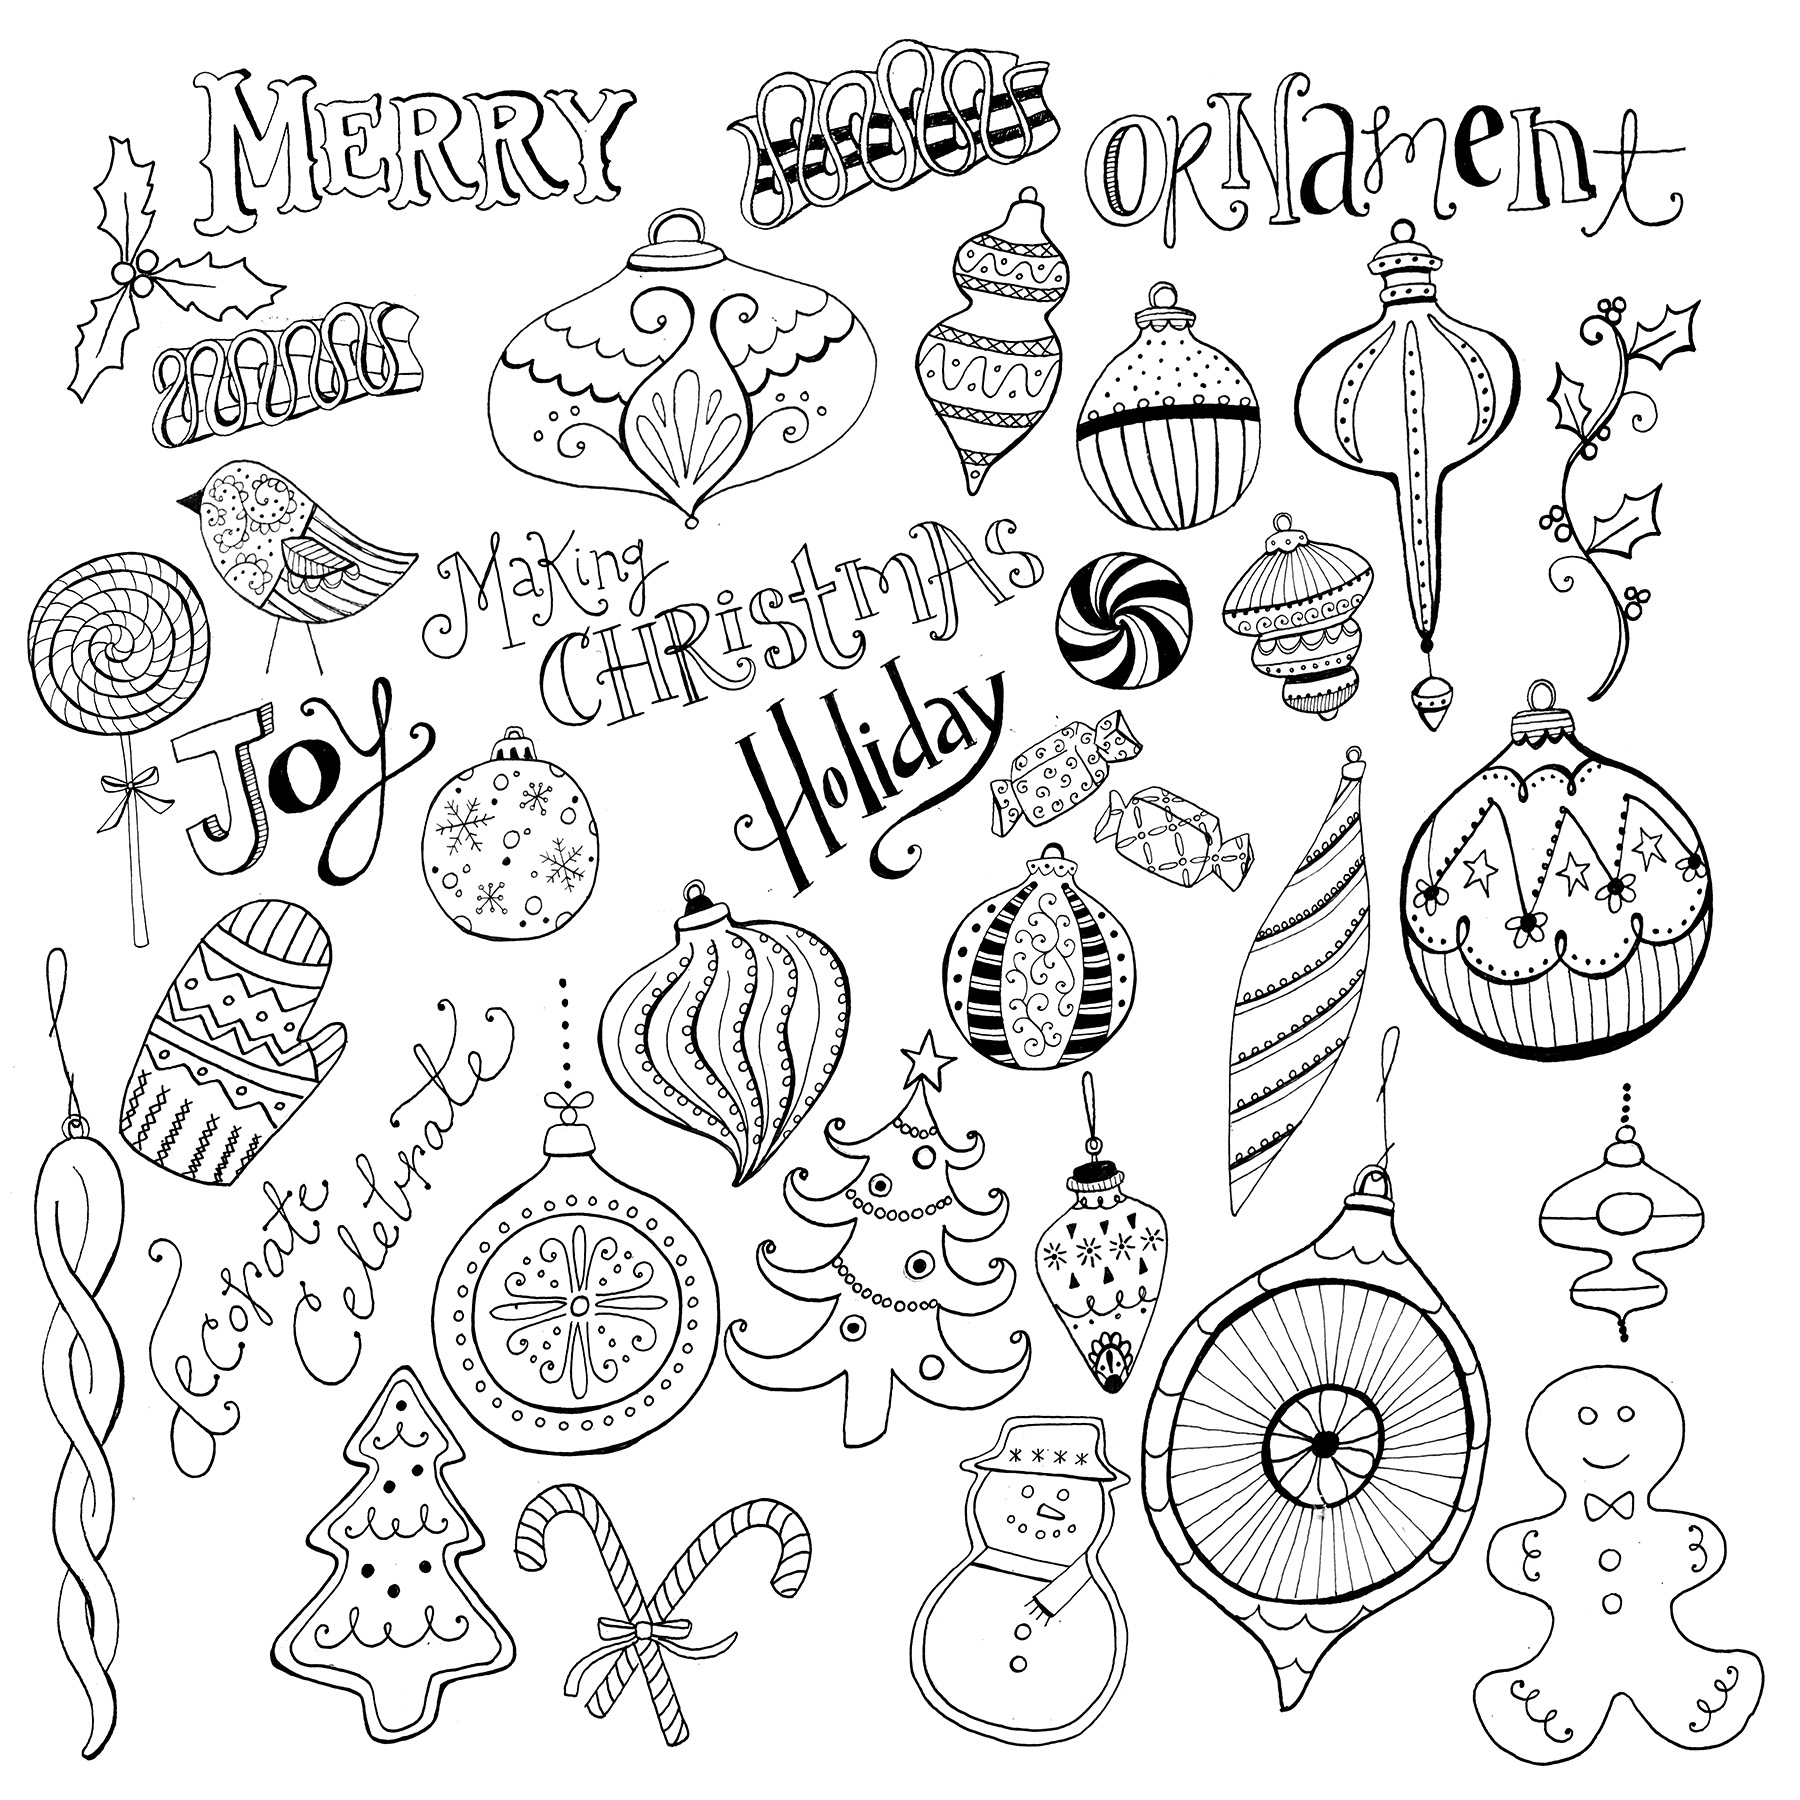 MERRY
ORNament
Making
CHRistmAS
Holiday
Joy
decorate
Celebrate